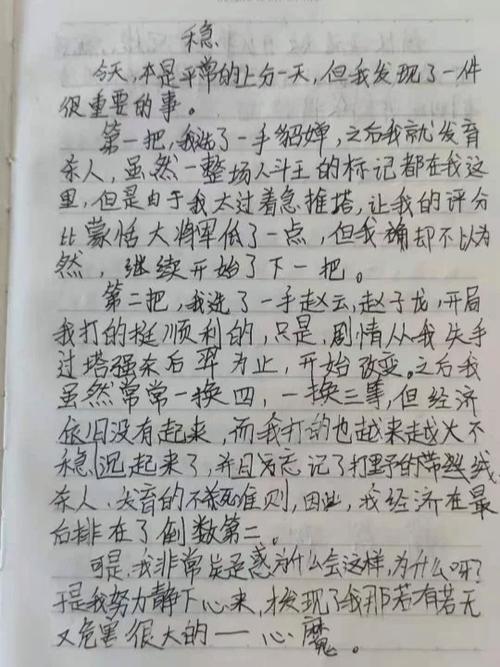 稳
今天，本是平常的上分一天，但我发现了一件
很重要的事。
第一把，我选了一手貂婵，之后我就发育
杀人，虽然一整场人斗王的标记都在我这
里，但是由于我太过着急推塔，让我的评分
比蒙恬大将军低了一点，但我确却不以为
然，继续开始了下一把。
第二把，我选了一手赵云，赵子龙，开局
我打的挺顺利的，只是，剧情从我失手
过塔强杀后羿为止，开始改变。之后我
虽然常常一换四，一换三等，但经济
依旧没有起来，而我打的也越来越火不
稳沉起来了，并且忘记了打野的带线
杀人、发育的不死准则，因此，我经济在最
后排在了倒数第二。
可是，我非常疑惑为什么会这样，为什么呀？
于是我努力静下心来，才发现了我那若有若无
又危害很大的——心魔。